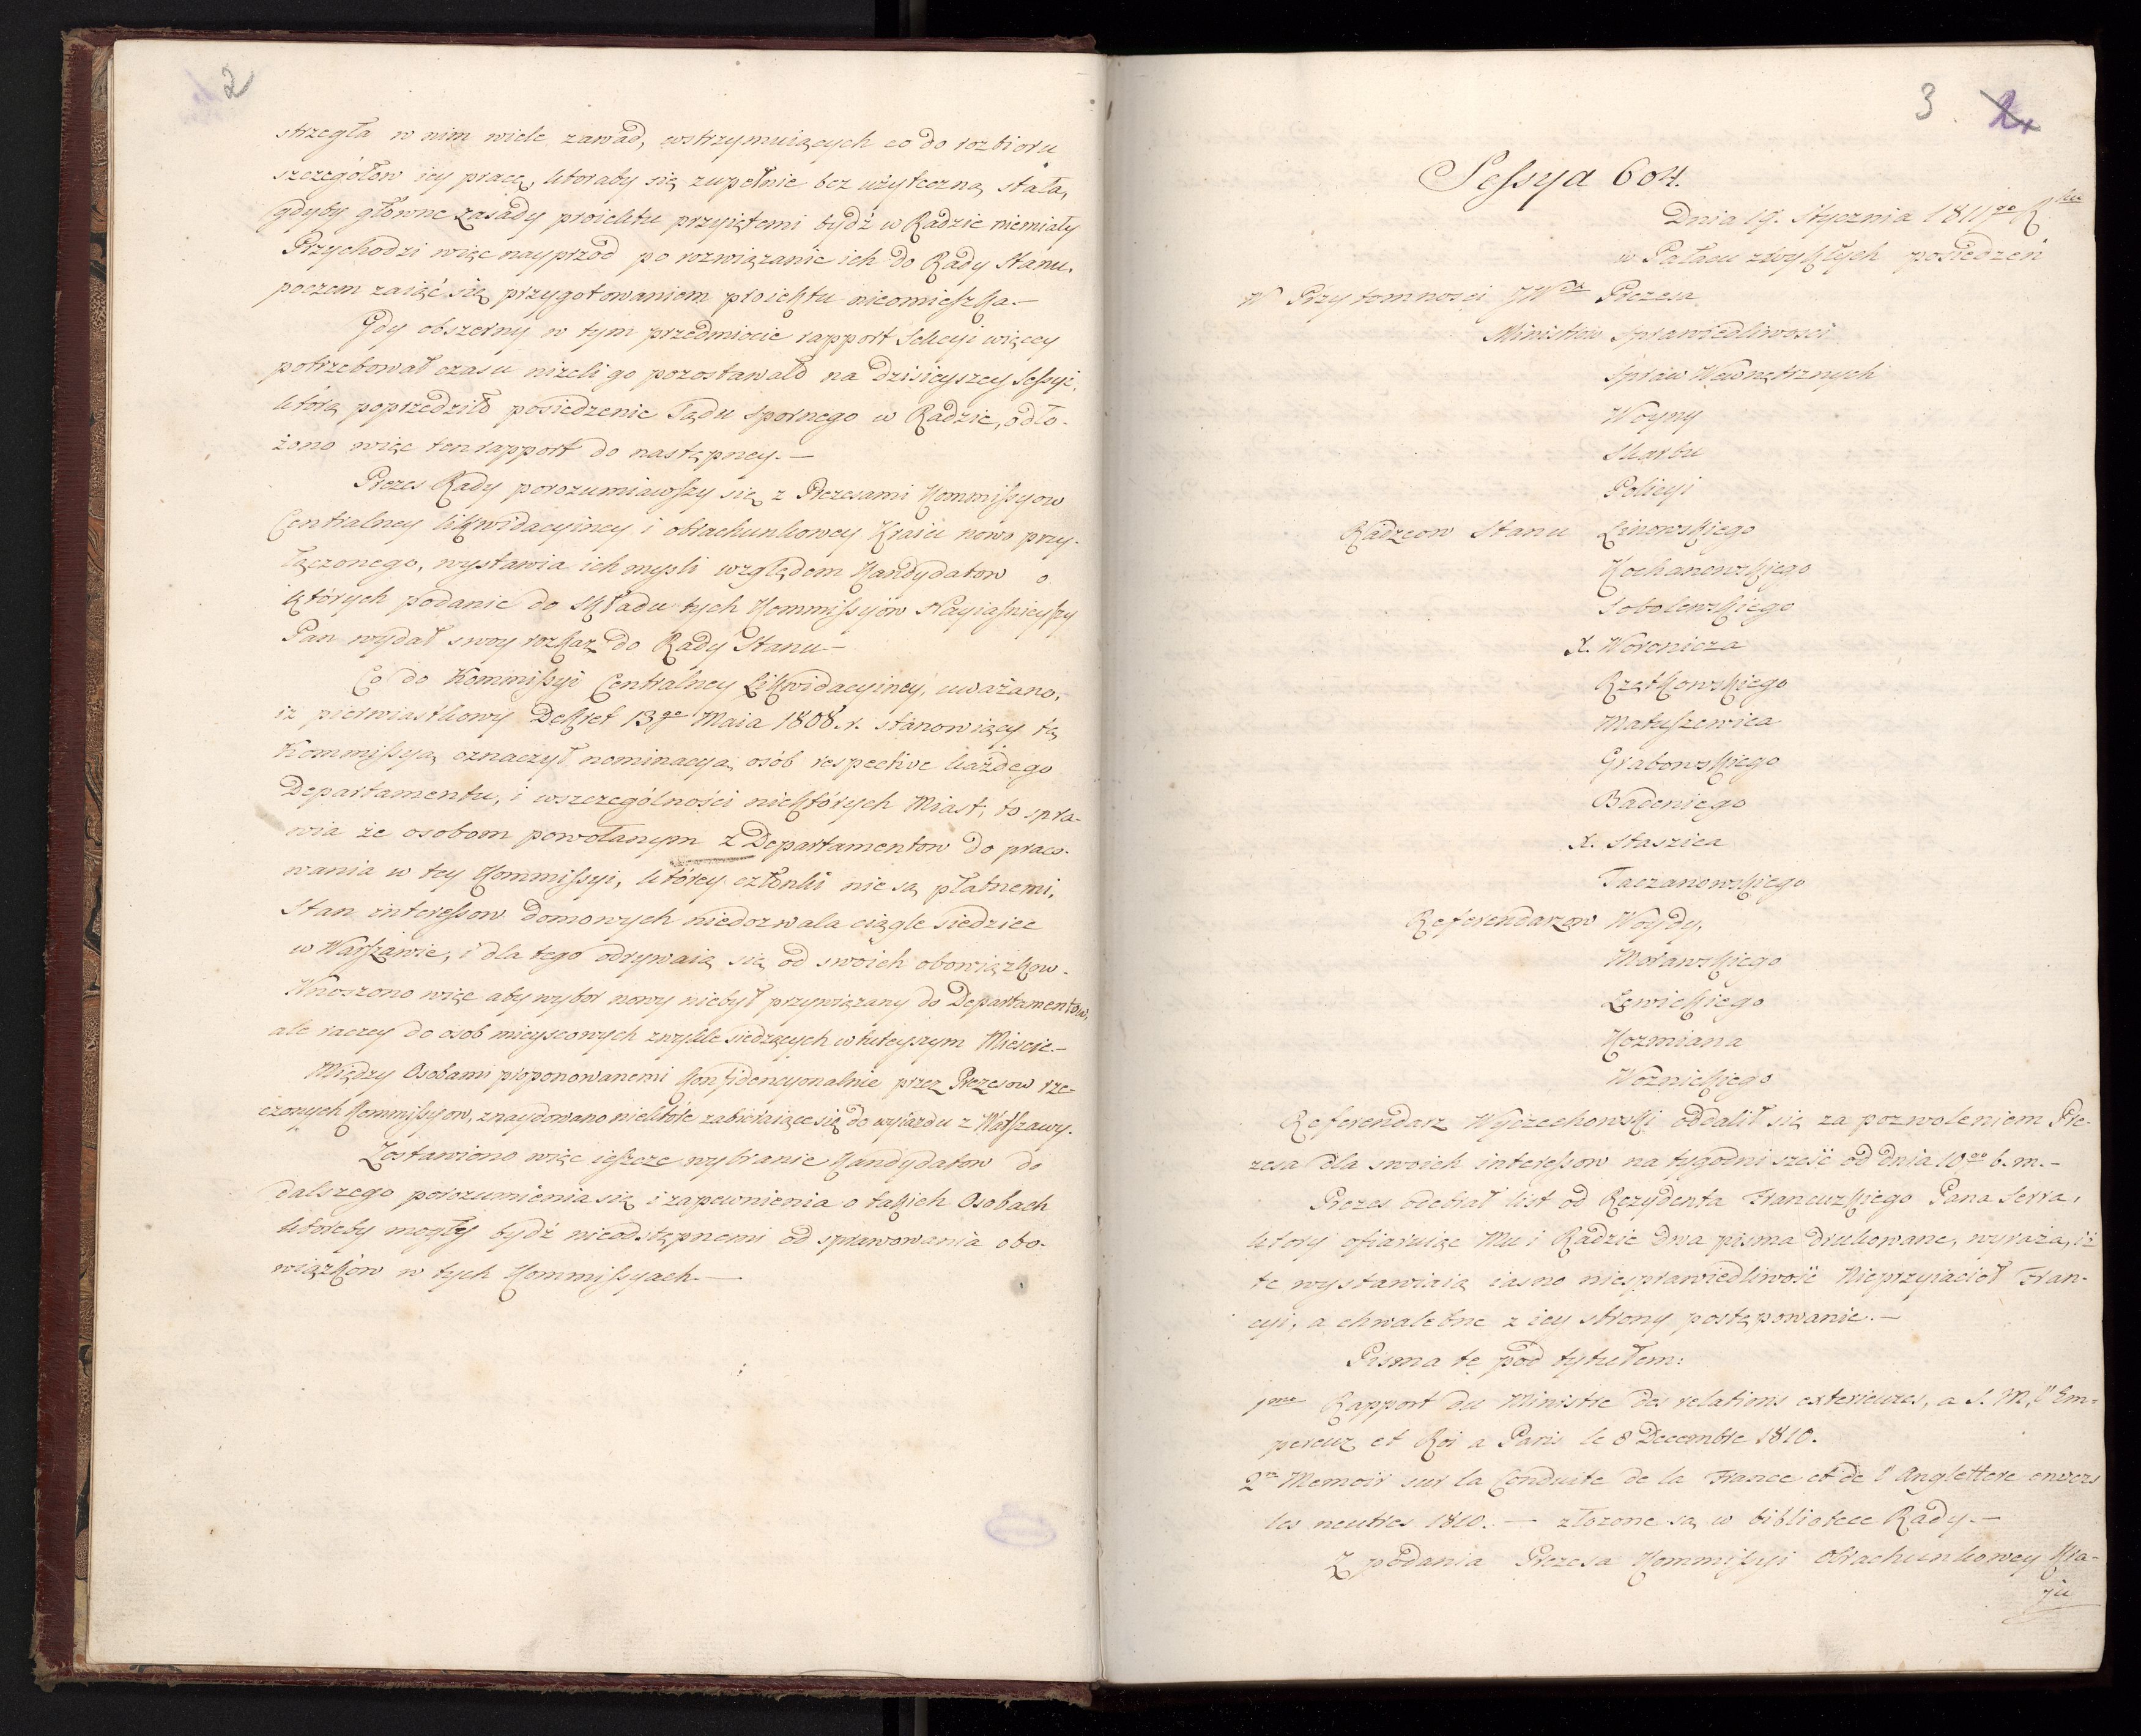 2
strzegła w nim wiele zawad, wstrzymuiących co do rozbioru
szczegółów iey pracę, ktoraby się zupełnie bez użyteczną stała,
gdyby główne zasady proiektu przyiętemi bydź w Radzie niemiały
Przychodzi więc nayprzód po rozwiązanie ich do Rady Stanu,
poczem zaiąć się przygotowaniem proiektu nieomieszka.—
Gdy obszerny w tym przedmiocie rapport Sekcyi więcey
potrzebował czasu niżeli go pozostawało na dzisieyszey Sessyi,
którą poprzedziło posiedzenie Sądu spornego w Radzie, odło-
żono więc ten rapport do następney.—
Prezes Rady porozumiawszy się z Prezesami Kommissyow
Centralney likwidacyiney i obrachunkowey Kraiu nowo przy-
łączonego, wystawia ich mysli względem Kandydatow o
których podanie do składu tych Kommissyów Nayiaśnieyszy
Pan wydał swoy rozkaz do Rady Stanu.—
Co do Kommissyi Centralney Likwidacyiney, uważano,
iż pierwiastkowy Dekret 13go Maia 1808. r. stanowiący tę
Kommissyą oznaczył nominacyą osób respective każdego
Departamentu, i wszczególności niektórych Miast, to spra-
wia że osobom powołanym z Departamentow do praco-
wania w tey Kommissyi, którey członki nie są płatnemi,
Stan interessow domowych niedozwala ciągle siedziec
w Warszawie, i dla tego odrywaią się od swoich obowiązkow.
Wnoszono więc aby wybor nowy niebył przywiązany do Departamentow,
ale raczey do osob mieyscowych zwykle siedzących w tuteyszym Miescie.—
Między Osobami proponowanemi konfidencyonalnie przez Prezesow rze-
czonych Kommissyow, znaydowano niektóre zabieraiące się do wyiazdu z Warszawy.
Zostawiono więc ieszcze wybranie Kandydatow do
dalszego porozumienia się i zapewnienia o takich Osobach
ktoreby mogły bydź nieodstępnemi od sprawowania obo-
wiązków w tych Kommissyach.—
3
2
Sessya 604.
Dnia 19. Stycznia 1811go Rku
w Pałacu zwykłych posiedzeń
W Przytomnosci JWch Prezesa
Ministrow Sprawiedliwosci
Spraw Wewnętrznych
Woyny
Skarbu
Policyi
Radzcow Stanu Linowskiego
Kochanowskiego
Sobolewskiego
X. Woronicza
Rzętkowskiego
Matuszewica
Grabowskiego
Badeniego
X. Staszica
Taczanowskiego
Referendarzow Woydy,
Morawskiego
Lewickiego
Kozmiana
Woznickiego
Referendarz Wyczechowski oddalił się za pozwoleniem Pre-
zesa dla swoich interessow na tygodni sześć od dnia 10go b.m.—
Prezes odebrał list od Rezydenta Francuzkiego Pana Serra,
ktory ofiaruiąc Mu i Radzie dwa pisma drukowane, wyraża, iż
te wystawiaią iasno niesprawiedliwość Nieprzyiaciół Fran-
cyi, a chwalebne z iey strony postępowanie.—
Pisma te pod tytułem:
1mo Rapport du Ministre des relations exterieures, a S. M. l'Em-
pereur et Roi a Paris le 8 Decembre 1810.
2do Memoir sur la Conduite de la France et de l'Anglettere envers
les neutres 1810.— złożone są w bibliotece Rady.—
Z podania Prezesa Kommissyi Obrachunkowey Kra-
ju